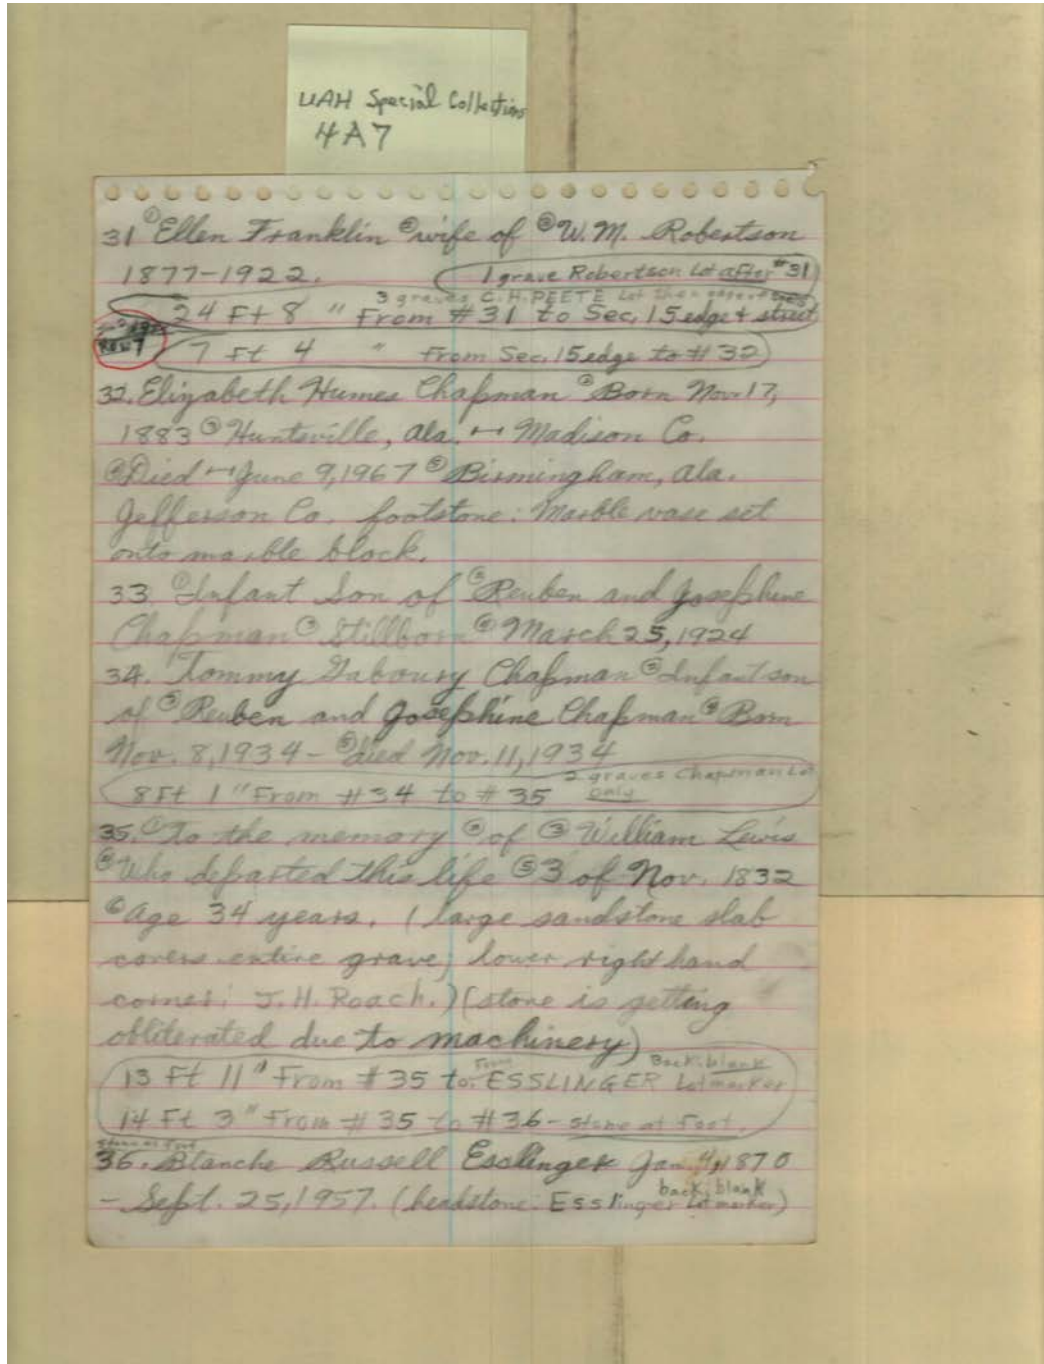 UAH Special Collections
4A7
31 ① Ellen Franklin ② wife of ③ W.M. Robertson
1877-1922. 1 grave Robertson Lot after #31
3 graves C.H. PEETE Lot then
24 Ft 8 " From #31 to Sec. 15 edge & street
Row 7
7 Ft 4 " From Sec. 15 edge to #32
32. Elizabeth Humes Chapman ② Born Nov. 17,
1883 ③ Huntsville, Ala. ↔ Madison Co.
④ Died ↔ June 9, 1967 ⑤ Birmingham, Ala.
Jefferson Co. footstone: Marble vase set
onto marble block.
33 ① Infant Son of ② Reuben and Josephine
Chapman ③ Stillborn ④ March 25, 1924
34. Tommy Gaboury Chapman ② Infant son
of ③ Reuben and Josephine Chapman ④ Born
Nov. 8, 1934 - ⑤ died Nov. 11, 1934
2 graves Chapman Lot
8 Ft 1 " From #34 to #35 only
35. ① To the memory ② of ③ William Lewis
④ Who departed this life ⑤ 3 of Nov. 1832
⑥ Age 34 years. (large sandstone slab
covers entire grave; lower right hand
corner: J.H. Roach.) (stone is getting
obliterated due to machinery)
Back: blank
13 Ft 11 " From #35 to: ESSLINGER Lot marker
14 Ft 3 " From #35 to #36 - stone at Foot.
stone at Foot
36. Blanche Russell Esslinger Jan. 4, 1870
back: blank
- Sept. 25, 1957. (headstone: Esslinger Lot marker)